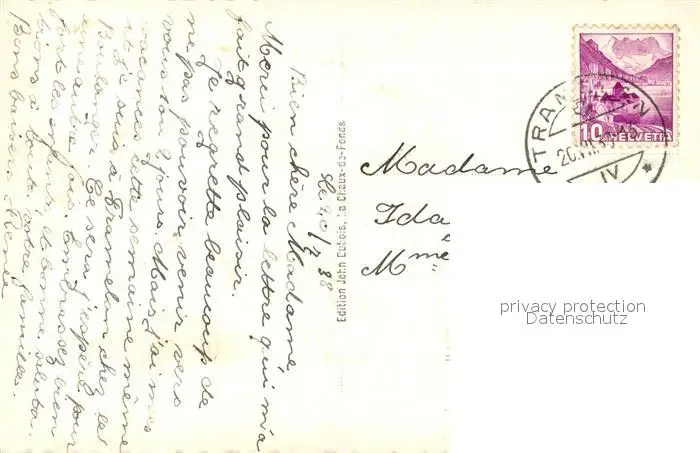 Le 20/7 38
Bien chère Madame,
Merci pour la lettre qui m'a
fait grand plaisir.
Je regrette beaucoup de
ne pas pouvoir venir vers
vous ou 2 jours. Mais j'ai mes
vacances cette semaine même
et je suis à Tramelan chez les
Boulanger. Ce sera j'espère pour
une autre fois. Embrassez bien
fort les enfants, et bonne saluta-
tions à toute votre famille.
Bons baisers
Edition John Dubois, La Chaux-de-Fonds
Madame
Ida
Mme
10 HELVETIA
TRAMELAN
20.VII.38
IV
privacy protection
Datenschutz